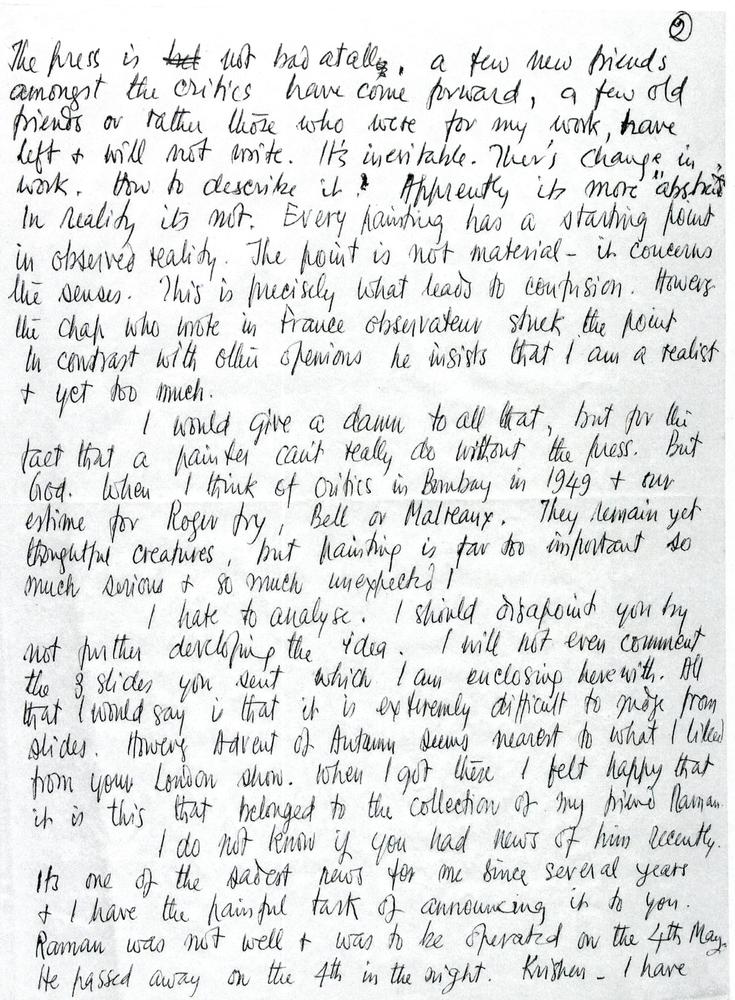 2
The press is but not bad at all, a few new friends
amongst the critics have come forward, a few old
friends or rather those who were for my work, have
left & will not write. It's inevitable. Ther's change in
work. How to describe it? Apprently its more "abstract"
In reality its not. Every painting has a starting point
in observed reality. The point is not material - it concerns
the senses. This is precisely what leads to confusion. Howevr
the chap who wrote in France observateur struck the point
In contrast with other openions he insists that I am a realist
& yet too much.
I would give a damn to all that, but for the
fact that a painter can't really do without the press. But
God. When I think of critics in Bombay in 1949 & our
estime for Roger Fry, Bell or Malreaux. They remain yet
thoughtful creatures, but painting is far too important so
much serious & so much unexpected!
I hate to analyse. I should disapoint you by
not further developing the idea. I will not even comment
the 3 slides you sent which I am enclosing herewith. All
that I would say is that it is exteremly difficult to judge from
slides. Howevr Advent of Autumn seems nearest to what I liked
from your London show. When I got these I felt happy that
it is this that belonged to the collection of my friend Raman.
I do not know if you had news of him recently.
Its one of the sadest news for me since several years
& I have the painful task of announcing it to you.
Raman was not well & was to be operated on the 4th May.
He passed away on the 4th in the night. Krishen - I have